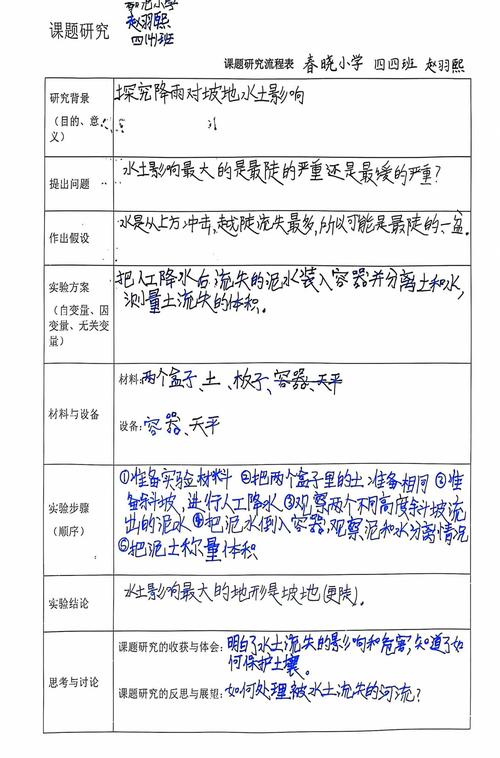 课题研究
赵羽熙
四(4)班
课题研究流程表 春晓小学 四四班 赵羽熙
研究背景
(目的、意义)
探究降雨对坡地水土影响
提出问题
水土影响最大的是最陡的严重还是最缓的严重?
作出假设
水是从上方冲击,越陡流失最多,所以可能是最陡的一盆.
实验方案
(自变量、因变量、无关变量)
把人工降水后,流失的泥水装入容器并分离土和水,
测量土流失的体积.
材料与设备
材料:两个盒子、土、板子、容器、天平
设备:容器、天平
实验步骤
(顺序)
①准备实验材料 ②把两个盒子里的土准备相同 ③准
备斜坡,进行人工降水 ③观察两个不同高度斜坡流
出的泥水 ④把泥水倒入容器,观察泥和水分离情况
⑤把泥土称量体积
实验结论
水土影响最大的地形是坡地(更陡).
思考与讨论
课题研究的收获与体会:明白了水土流失的影响和危害,知道了如
何保护土壤。
课题研究的反思与展望:如何处理被水土流失的河流?